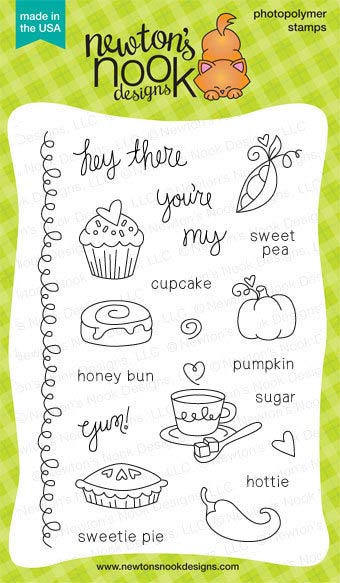 made in
the USA
newton's
nook
designs
photopolymer
stamps
hey there
you're
my
sweet
pea
cupcake
honey bun
pumpkin
sugar
yum!
hottie
sweetie pie
www.newtonsnookdesigns.com
© Newton's Nook Designs, LLC